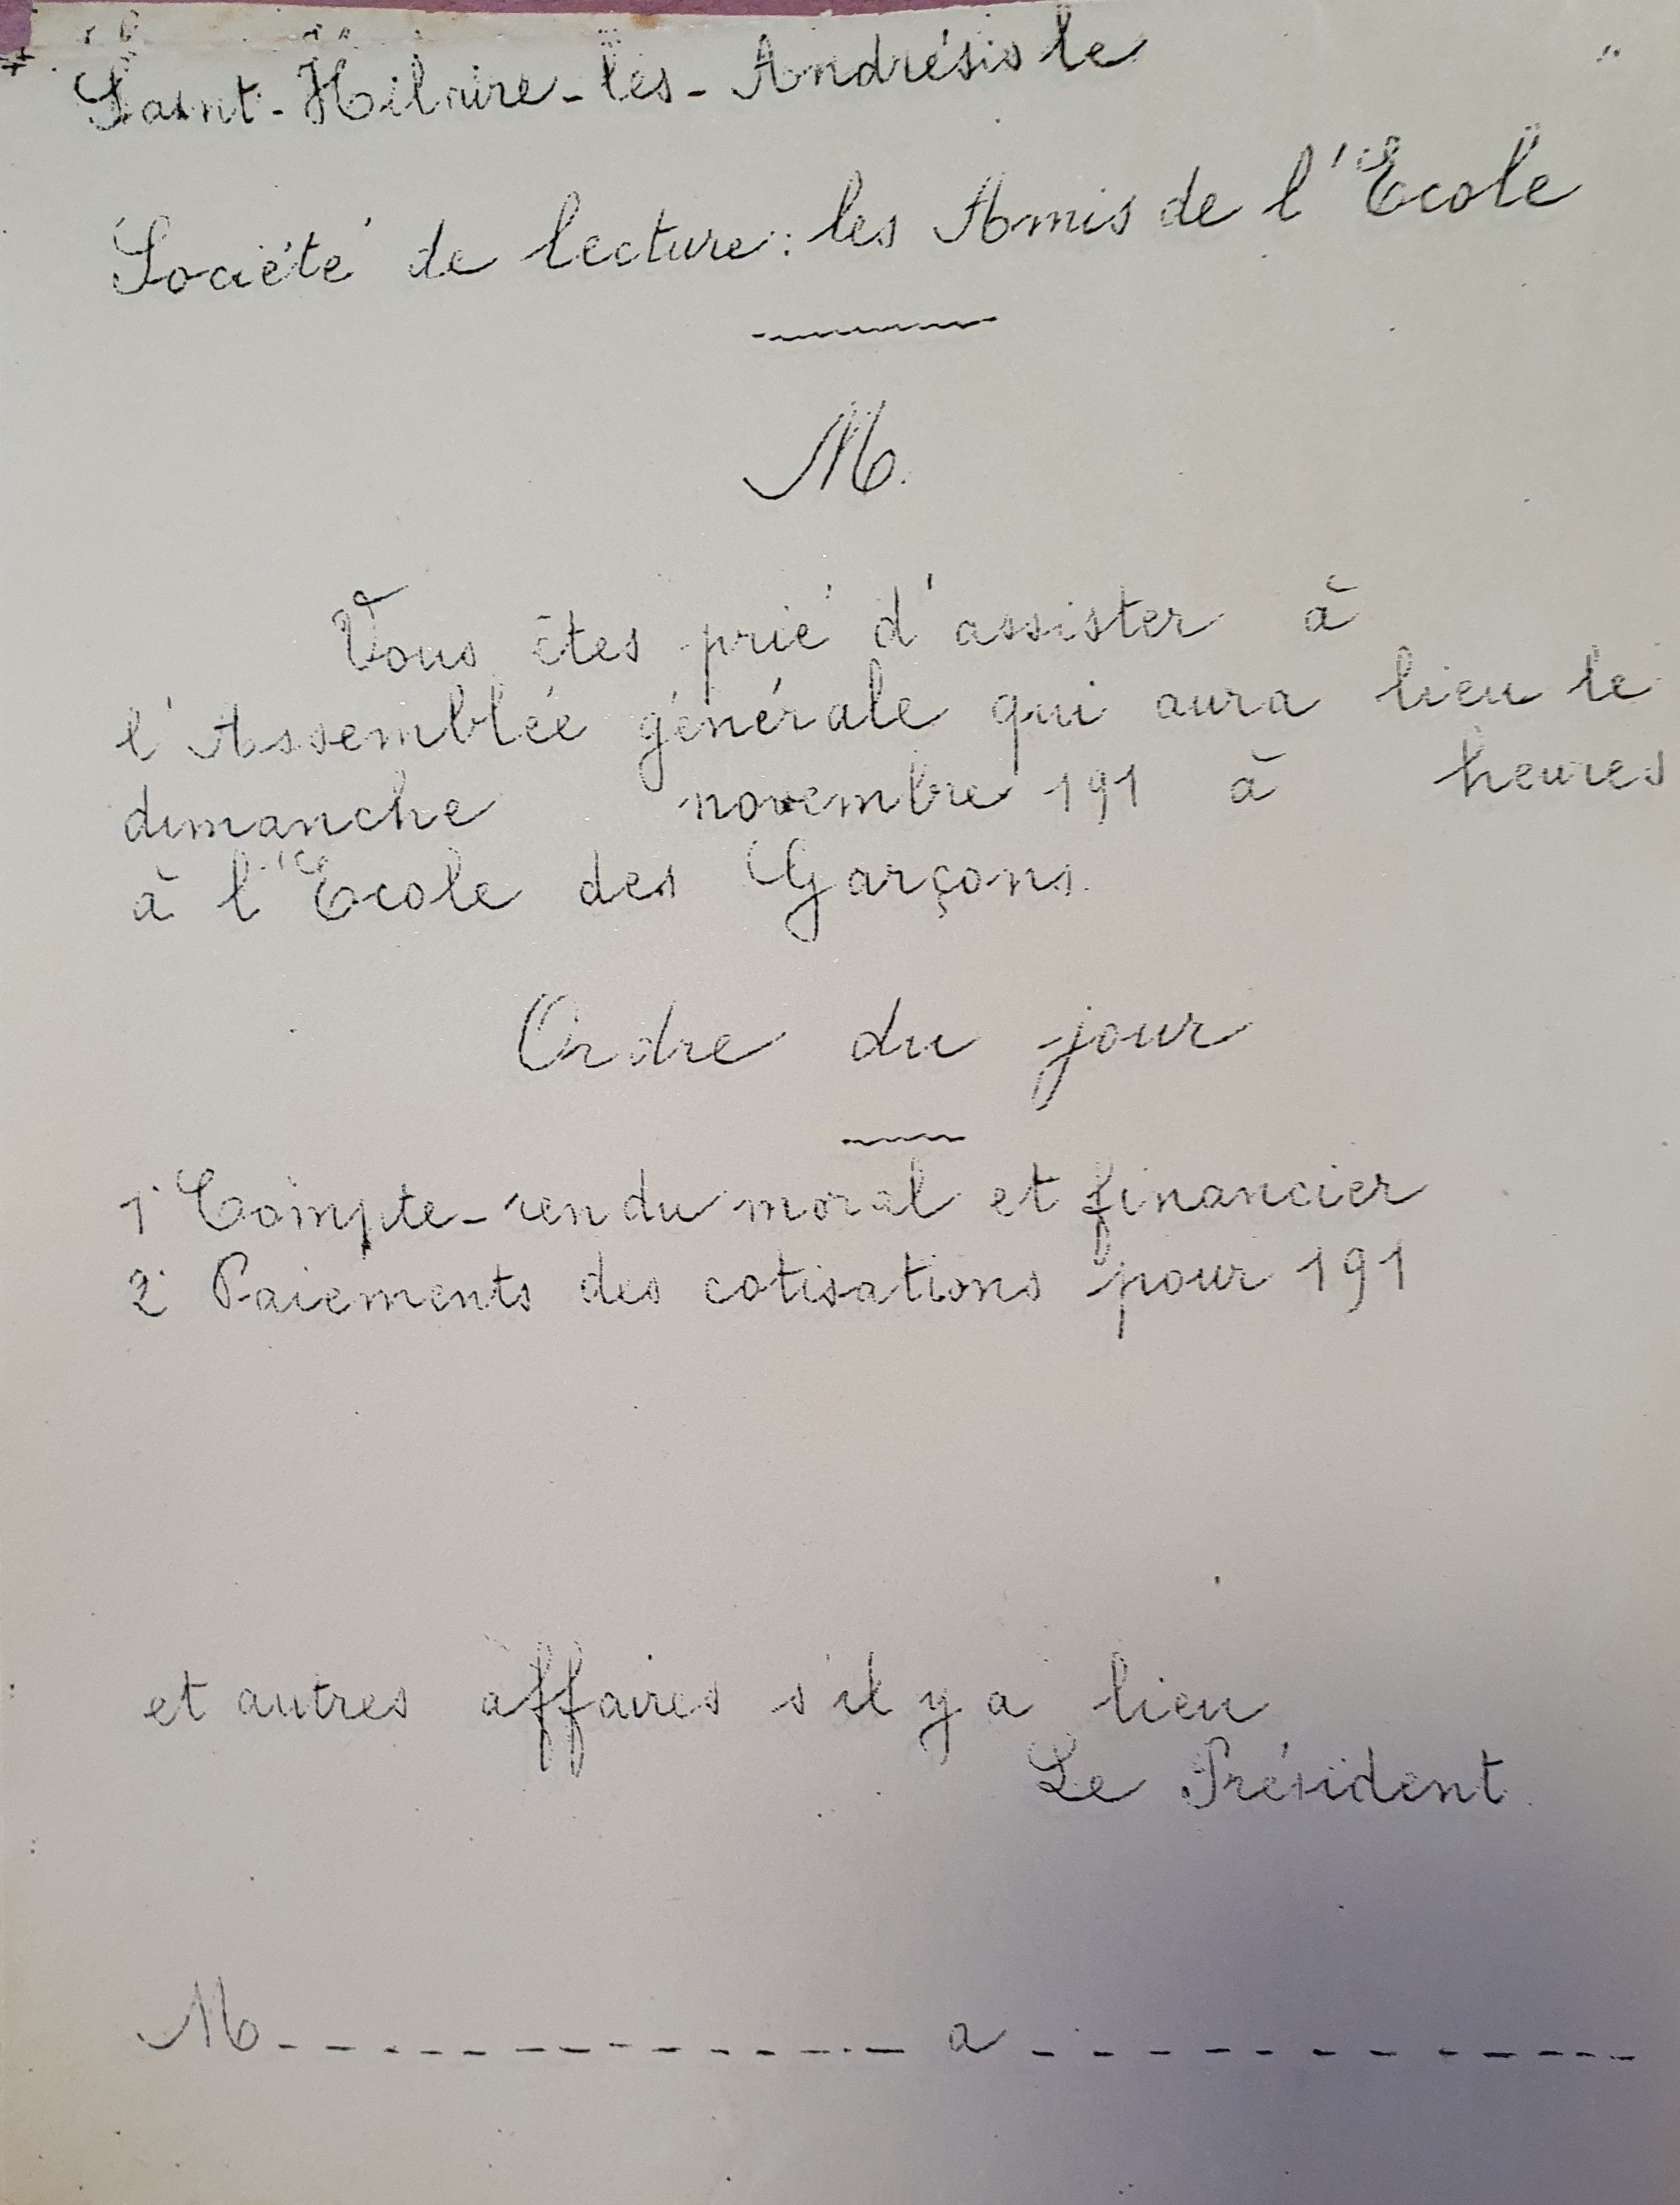 Saint-Hilaire-les-Andrésis le
Société de lecture: les Amis de l'Ecole
M.
Vous êtes prié d'assister à
l'Assemblée générale qui aura lieu le
dimanche novembre 191 à heures
à l'Ecole des Garçons.
Ordre du jour
1° Compte-rendu moral et financier
2° Paiements des cotisations pour 191
et autres affaires s'il y a lieu
Le Président.
M a